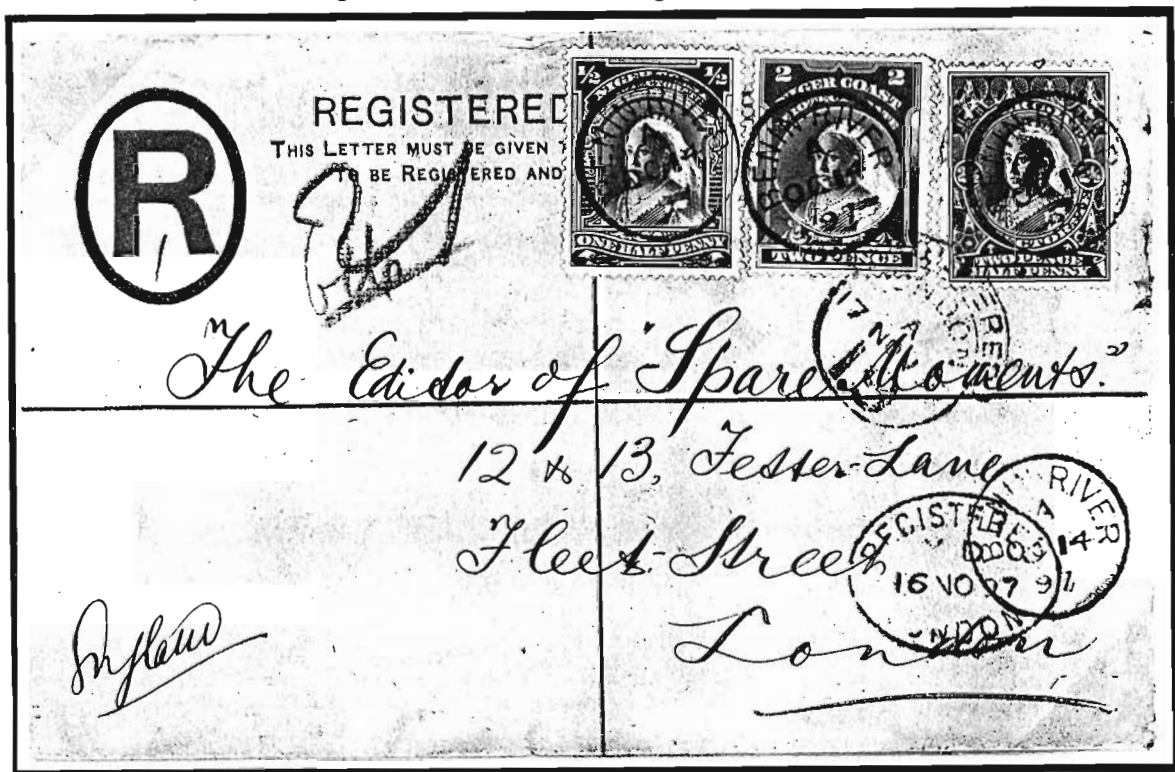 R
REGISTERED
THIS LETTER MUST BE GIVEN
TO BE REGISTERED AND
1/2 1/2
NIGER COAST
ONE HALF PENNY
2 2
NIGER COAST
TWO PENCE
TWO PENCE
HALF PENNY
BENIN RIVER
OC 14
97
The Editor of "Spare Moments"
12 & 13, Fetter-Lane
Fleet-Street
London
England
17 NO
REGISTERED
16 NO 97
LONDON
BENIN RIVER
OC 14
97